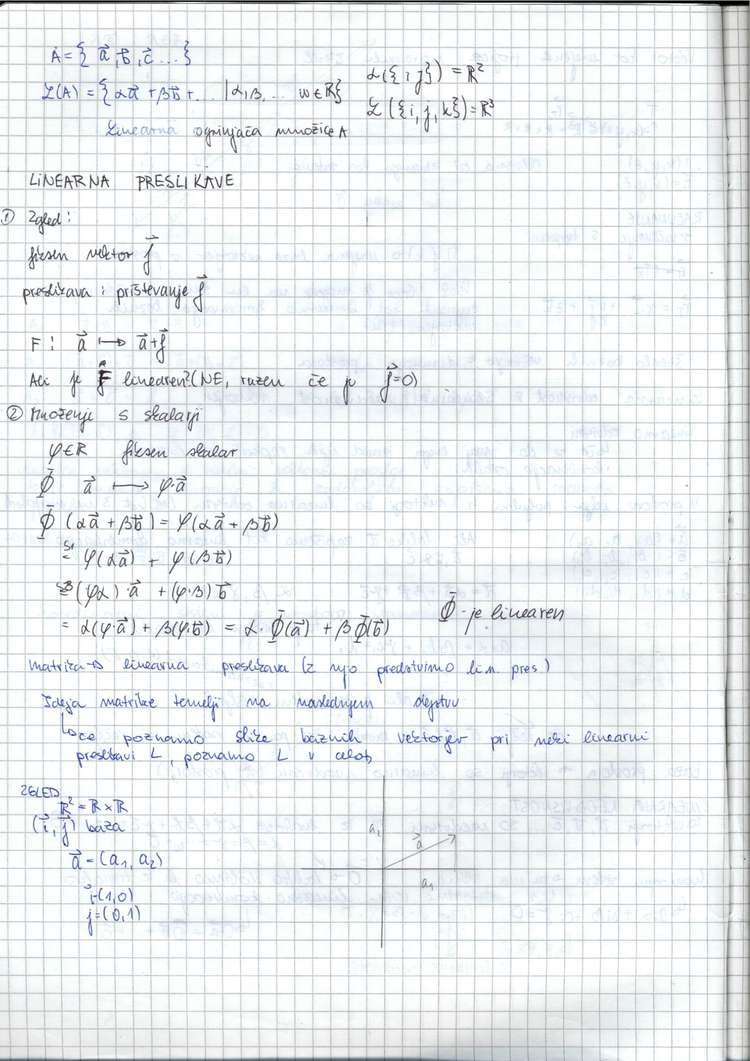 A = { a⃗, b⃗, c⃗ ... }
L({i, j}) = ℝ²
L(A) = { αa⃗ + βb⃗ + ... | α, β, ... ω ∈ ℝ }
L({i, j, k}) = ℝ³
Linearna ogrinjača množice A
LINEARNA PRESLIKAVE
① Zgled:
fiksen vektor f⃗
preslikava: prištevanje f⃗
F: a⃗ ↦ a⃗+f⃗
Ali je F linearen? (NE, razen če je f⃗=0)
② Množenje s skalarji
φ∈ℝ fiksen skalar
Φ a⃗ ↦ φ·a⃗
Φ (αa⃗ + βb⃗) = φ(αa⃗ + βb⃗)
= φ(αa⃗) + φ(βb⃗)
= (φα)·a⃗ + (φ·β)b⃗
Φ - je linearen
= α(φ·a⃗) + β(φ·b⃗) = α·Φ(a⃗) + βΦ(b⃗)
matrika → linearna preslikava (z njo predstavimo lin. pres.)
Ideja matrike temelji na naslednjem dejstvu
↳ če poznamo slike baznih vektorjev pri neki linearni
preslikavi L, poznamo L v celoti
ZGLED
ℝ² = ℝ × ℝ
(i⃗, j⃗) baza
a⃗ = (a₁, a₂)
i=(1,0)
j=(0,1)
a₂
a⃗
a₁